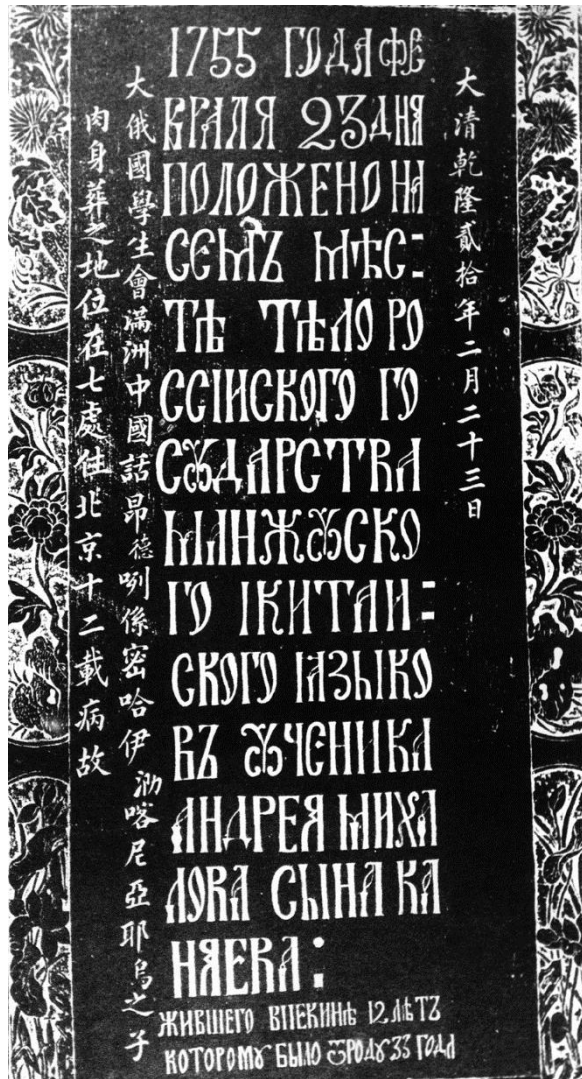 大清乾隆貳拾年二月二十三日
1755 ГОДА ФЕ
ВРАЛЯ 23 ДНЯ
ПОЛОЖЕНО НА
СЕМЪ МѢС:
ТѢ ТѢЛО РО
ССІИСКОГО ГО
СꙊДАРСТВА
МАНЖꙊСКО
ГО ІКИТАИ:
СКОГО ІАЗЫКО
ВЪ ꙊЧЕНИКА
АНДРЕЯ МИХА
ЛОВА СЫНА КА
НЯЕВА:
ЖИВШЕГО ВПЕКИНѢ 12 ЛѢТЪ
КОТОРОМꙋ БЫЛО ѾРОДꙋ 33 ГОДА
大俄國學生會滿洲中國話昂德咧係密哈伊泐喀尼亞耶烏之子
肉身葬之地位在七處住北京十二載病故